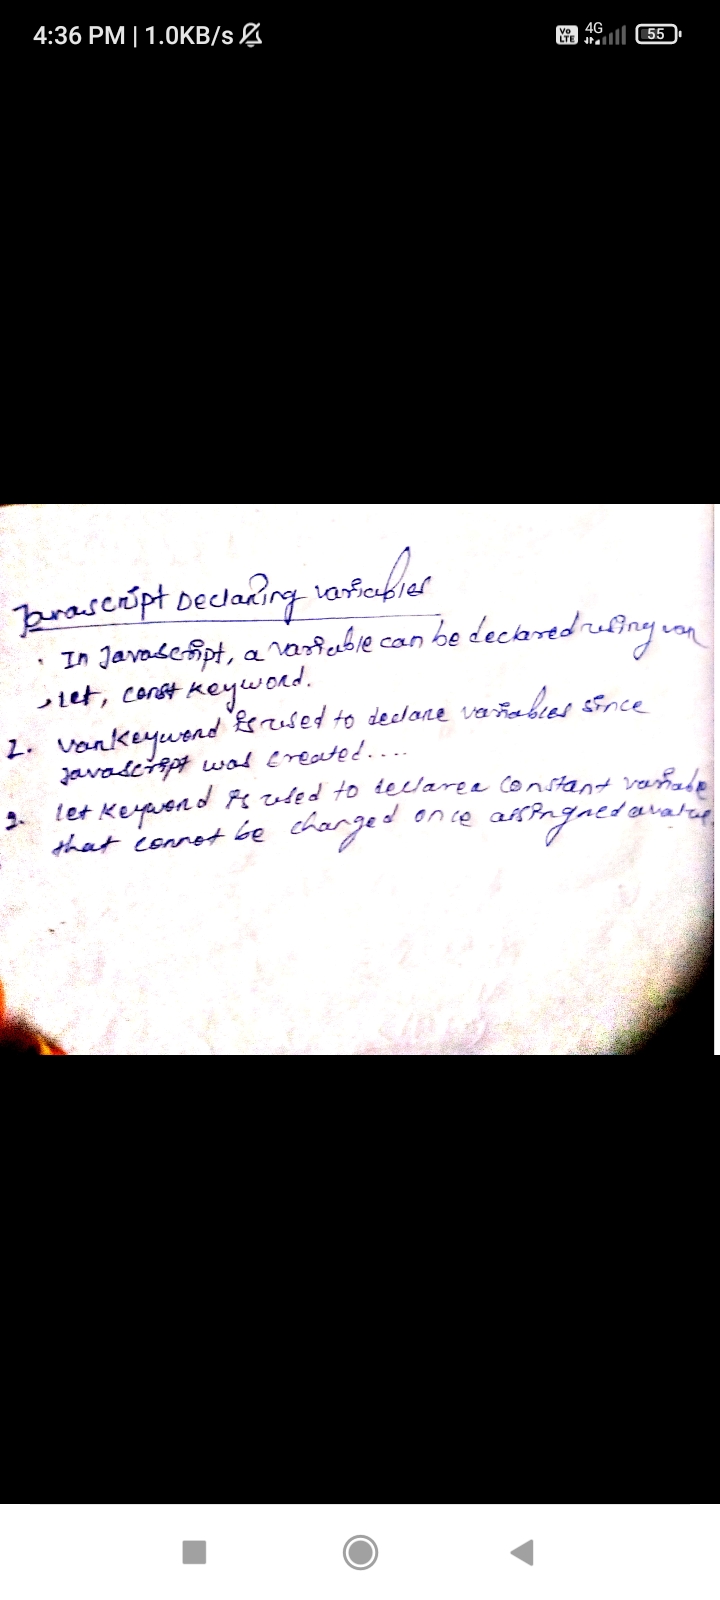 4:36 PM | 1.0KB/s
Vo LTE 4G 55
Javascript Declaring variables
. In Javascript, a variable can be declared using var
, let, const keyword.
1. var keyword is used to declare variables since
javascript was created....
2. let keyword is used to declare a constant variable
that connot be changed once assingned a value.